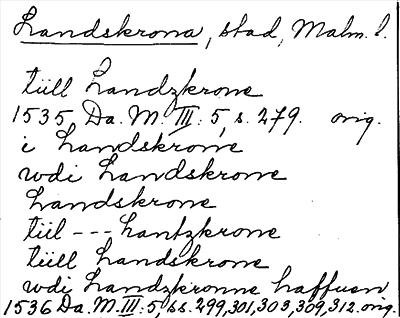 Landskrona, stad, Malm. l.
tüll Landzkrone
1535 Da. M. III: 5, s. 279. orig.
i Landskrone
wdi Landskrone
Landskrone
tiil --- Lantzkrone
tüll Landskrone
wdi Landzkronne haffuen
1536 Da. M. III: 5, ss. 299, 301, 303, 309, 312. orig.